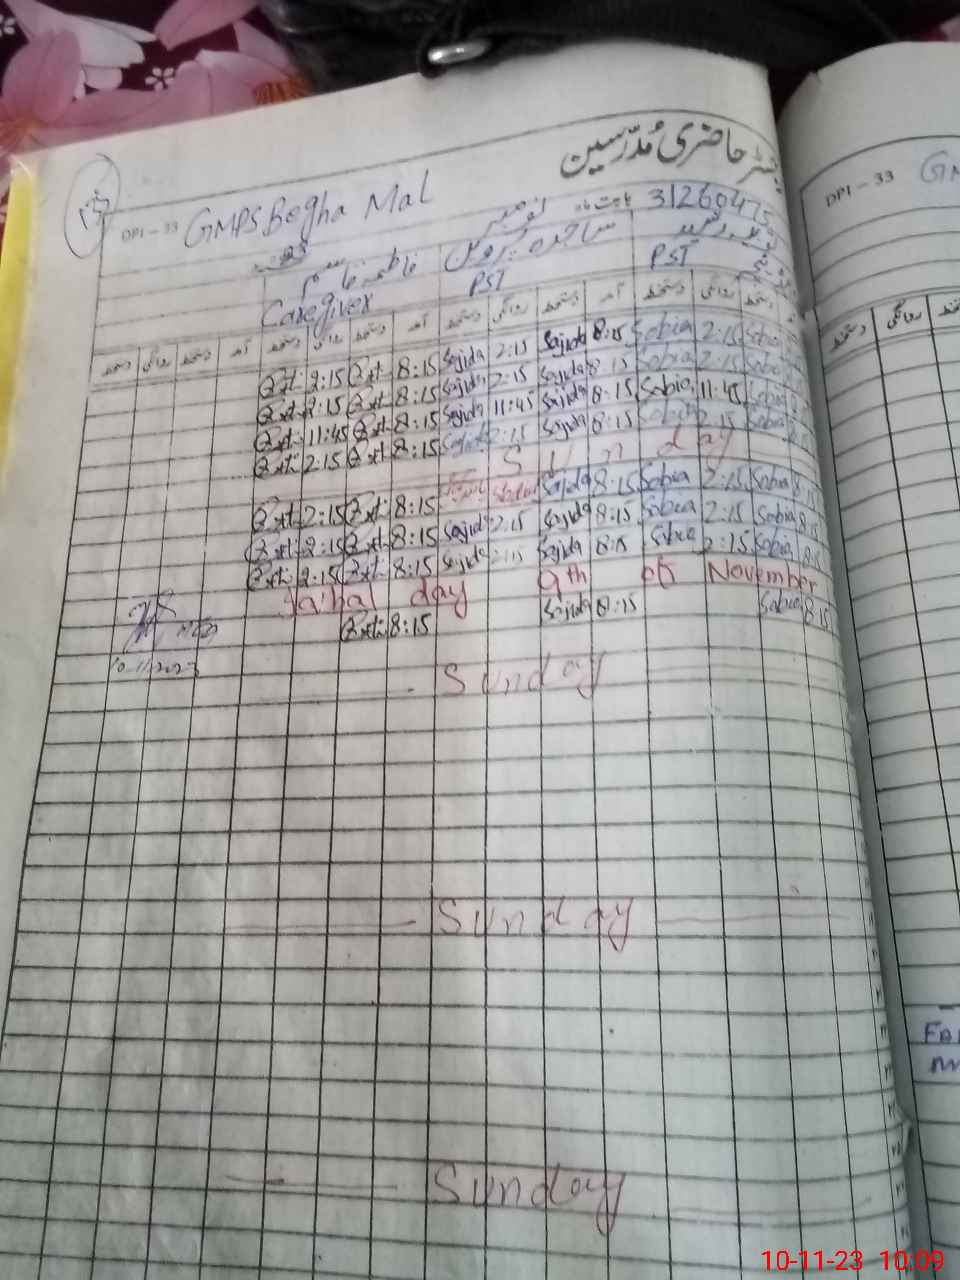 حاضری مُدرّسین
DPI - 33 GMPS Begha Mal بابت ماہ نومبر 31260475
DPI - 33 GM
فاطمہ قاسم ساجدہ پروین
Caregiver PST PST
دستخط روانگی دستخط آمد دستخط روانگی دستخط آمد دستخط روانگی دستخط آمد دستخط روانگی دستخط
دستخط روانگی
2:15 8:15 Sajida 2:15 Sajida 8:15 Sobia 2:15 Sobia
2:15 8:15 Sajida 2:15 Sajida 8:15 Sobia 2:15 Sobia
11:45 8:15 Sajida 11:45 Sajida 8:15 Sobia 11:45 Sobia
2:15 8:15 Sajida 2:15 Sajida 8:15 Sobia 2:15 Sobia
Sunday
2:15 8:15 Sajida 8:15 Sobia 2:15 Sobia 8:15
2:15 8:15 Sajida 2:15 Sajida 8:15 Sobia 2:15 Sobia 8:15
2:15 8:15 Sajida 2:15 Sajida 8:15 Sobia 2:15 Sobia 8:15
Iqbal day 9th of November
8:15 Sajida 8:15 Sobia 8:15
10-11-2023
Sunday
Sunday
Sunday
10-11-23 10:09